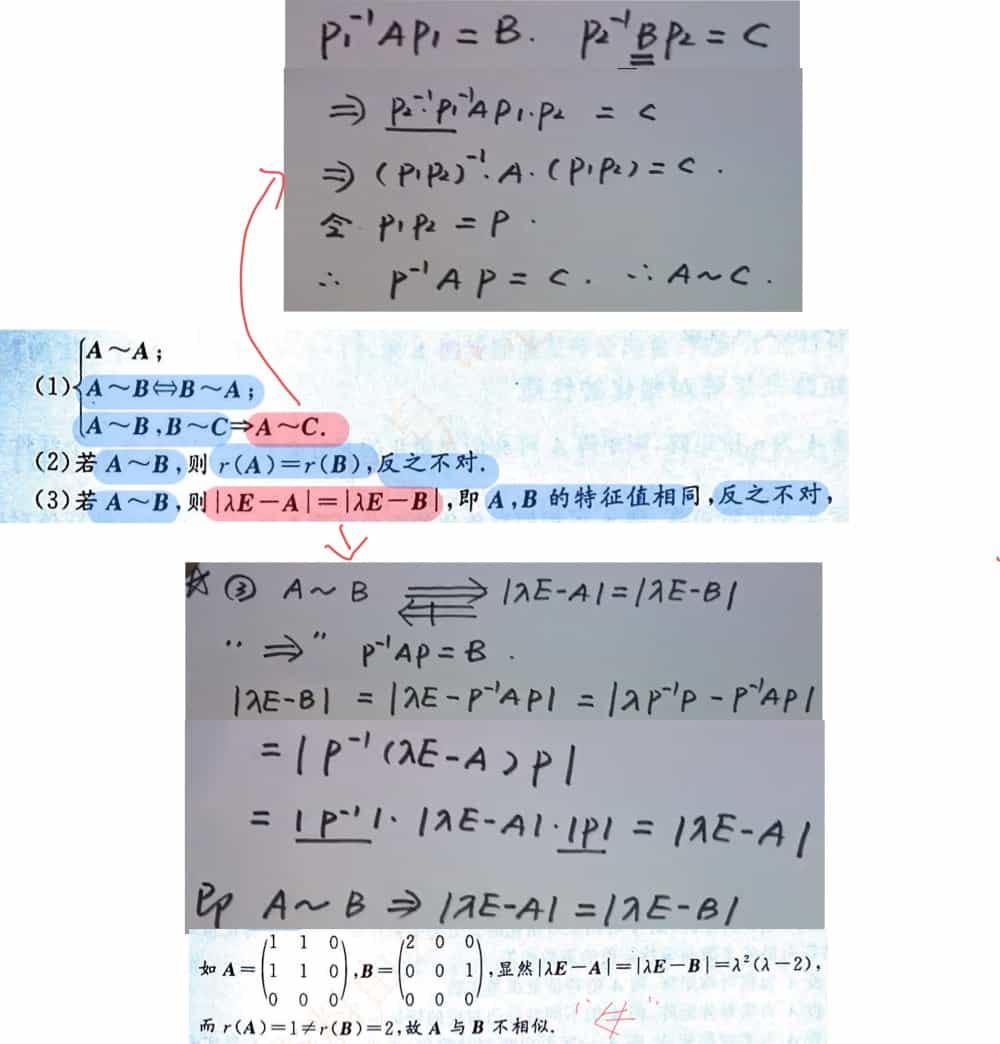 P₁⁻¹AP₁ = B. P₂⁻¹BP₂ = C
⇒ P₂⁻¹·P₁⁻¹AP₁·P₂ = C
⇒ (P₁P₂)⁻¹·A·(P₁P₂) = C.
令 P₁P₂ = P.
∴ P⁻¹AP = C. ∴ A~C.
(1) A~A;
A~B⇔B~A;
A~B,B~C⇒A~C.
(2)若 A~B,则 r(A)=r(B),反之不对.
(3)若 A~B,则|λE-A|=|λE-B|,即 A,B 的特征值相同,反之不对,
☆ ③ A~B ⇒ |λE-A|=|λE-B|
"⇒" P⁻¹AP=B.
|λE-B| = |λE-P⁻¹AP| = |λP⁻¹P-P⁻¹AP|
= |P⁻¹(λE-A)P|
= |P⁻¹|·|λE-A|·|P| = |λE-A|
即 A~B ⇒ |λE-A|=|λE-B|
1 1 0 2 0 0
如 A= 1 1 0 ,B= 0 0 1 ,显然|λE-A|=|λE-B|=λ²(λ-2),
0 0 0 0 0 0
而 r(A)=1≠r(B)=2,故 A 与 B 不相似. "⇍"